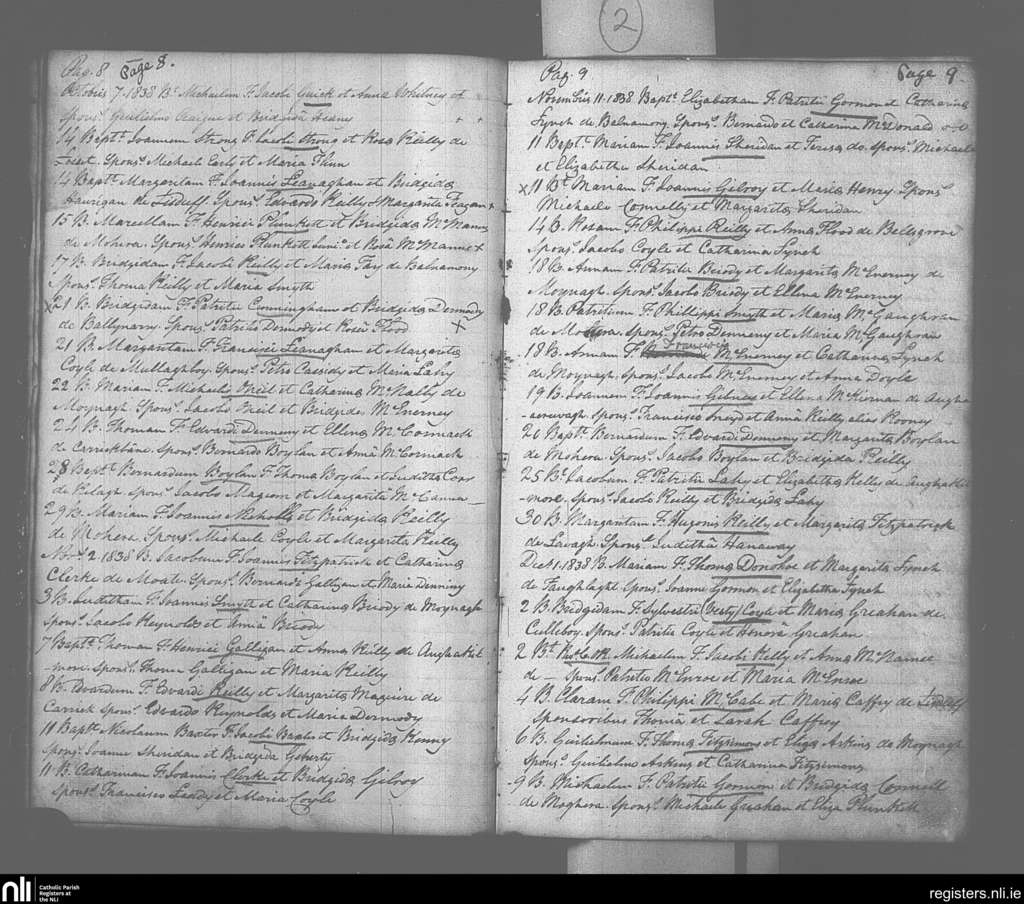 2
Pag. 8 Page 8.
Octobris 7. 1838 Bt. Michaelem F. Jacobi Quick et Anna Whitney et
Spons. et Bridgida
14 Bapt. Joannem Strong F. Jacobi Strong et Rosa Reilly de
Spons. Michael Early et Maria Flinn
14 Bapt. Margaritam F. Joannis Leanaghan et Bridgida
Haurigan de Lisduff. Spons. Edvardo Reilly & Margarita Fagan x
15 B. Marcellam F. Henrici Plunkett et Bridgida McMannus
de Mohera. Spons. Henrico Plunkett Juni. et Rosa McManne x
17 B. Bridgidam F. Jacobi Reilly et Maria Fay de Balnamony
Spons. Thoma Reilly et Maria Smyth
x 21 B. Bridgidam F. Patritii Cunningham et Bridgida Dermody
de Ballynarry. Spons. Patritio Dermody et Rosa Flood x
21 B. Margaritam F. Francisci Leanaghan et Margarita
Coyle de Mullaghboy. Spons. Petro Cassidy et Maria Lahy
22 B. Mariam F. Michaelis Oneil et Catharina McNally de
Moynagh. Spons. Jacobo Oneil et Bridgida McEnerney
24 B. Thomam F. Edvardi Denneny et Ellena McCormack
de Carrickbane. Spons. Bernardo Boylan et Anna McCormack
28 Bapt. Bernardum Boylan F. Thoma Boylan et Juditha
de Kelagh Spons. Jacobo Mageen et Margarita McCanna
29 B. Mariam F. Joannis Nicholls et Bridgida Reilly
de Mohera. Spons. Michaele Coyle et Margarita Reilly
Nov. 2 1838 B. Jacobum F. Joannis Fitzpatrick et Catharina
Clerke de Moate. Spons. Bernardo Galligan et Maria Denniny
3 B. Juditham F. Joannis Smyth et Catharina Briody de Moynagh
Spons. Jacobo Reynolds et Anna Briody
7 Bapt. Thomam F. Henrici Galligan et Anna Reilly de Aughakil-
more. Spons. Thoma Galligan et Maria Reilly
8 B. Edvardum F. Edvardi Reilly et Margarita Maguire de
Carrick Spons. Edvardo Reynolds et Maria Dermody
11 Bapt. Nicolaum Baxter F. Jacobi Baxter et Bridgida Kenny
Spons. Joanne Sheridan et Bridgida
11 B. Catharinam F. Joannis Clerke et Bridgida Gilroy
Spons. Francisco Leddy et Maria Coyle
Pag. 9 Page 9
Novembris 11. 1838 Bapt. Elizabetham F. Patritii Gormon et Catharina
Lynch de Balnamony. Spons. Bernardo et Catherina McDonald
11 Bapt. Mariam F. Joannis Sheridan et Teresa do. Spons. Michaele
et Elizabetha Sheridan
x 11 Bt. Mariam F. Joannis Gilroy et Maria Henry Spons.
Michaele Connelly et Margarita Sheridan
14 B. Rosam F. Philippi Reilly et Anna Flood de Bellsgrove
Spons. Jacobo Coyle et Catharina Lynch
18 B. Annam F. Patritii Briody et Margarita McEnerney de
Moynagh. Spons. Jacobo Briody et Ellena McEnerney
18 B. Patritium F. Phillippi Smyth et Maria McGaughran
de Mohera. Spons. Petro Denneny et Maria McGaughran
18 B. Annam F. Francisci McEnerney et Catharina Lynch
de Moynagh. Spons. Jacobo McEnerney et Anna Doyle
19 B. Joannem F. Joannis Gibney et Ellena McKiernan de Augha-
-acreevagh. Spons. Francisco Sneyd et Anna Reilly alias Rooney
20 Bapt. Bernardum F. Edvardi Denneny et Margarita Boylan
de Mohera. Spons. Jacobo Boylan et Bridgida Reilly
25 Bt. Jacobum F. Patritii Lahy et Elizabetha Reilly de Aughakil
-more. Spons. Jacobo Reilly et Bridgida Lahy
30 B. Margaritam F. Hugonis Reilly et Margarita Fitzpatrick
de Lavagh. Spons. Juditha Hanaway
Decr. 1. 1838 B. Mariam F. Thoma Donohoe et Margarita Lynch
de Faughlaght Spons. Joanne Gormon et Elizabetha Lynch
2 B. Bridgidam F. Sylvestri (Vesty) Coyle et Maria Greahan de
Culleboy. Spons. Patritio Coyle et Honora Greahan
2 Bt. Michaelem F. Jacobi Kelly et Anna McNamee
de — Spons. Patritio McEnroe et Maria McEnroe
4 B. Claram F. Philippi McCabe et Maria Caffry de Lisduff
Sponsoribus Thoma et Sarah Caffrey
6 B. Guilielmum F. Thoma Fitzsimons et Eliza Askins de Moynagh
Spons. Guilielmo Askins et Catharina Fitzsimons
9 B. Michaelem F. Patritii Gormon et Bridgida Connell
de Moghera. Spons. Michaele Greahan et Eliza Plunkett
nli Catholic Parish Registers at the NLI
registers.nli.ie